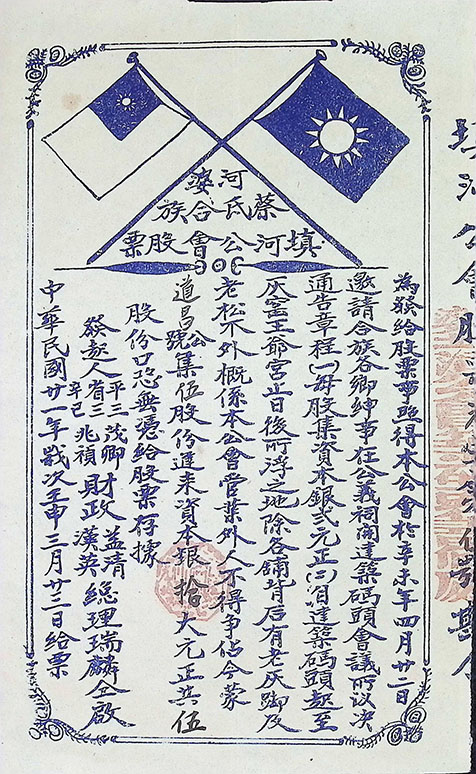 河婆
蔡氏合族
填河公會股票
為發給股票事照得本公會於辛未年四月廿二日
邀請合族各鄉紳事在公義祠開建築碼頭會議所议决
通告章程(一)每股集資本銀弍元正(二)自建築碼頭起至
灰窰王爺宮止日後所浮之地除各鋪背后有老灰踋及
老松不外概係本公會營業外人不得爭佔今蒙
道昌公號集伍股份進来資本銀拾大元正共伍
股份口恐無憑給股票存據
發起人平三省三辛已茂卿兆禎財政益清漢英總理瑞麟仝啟
中華民國廿一年歲次壬申三月廿三日給票
填河公會股